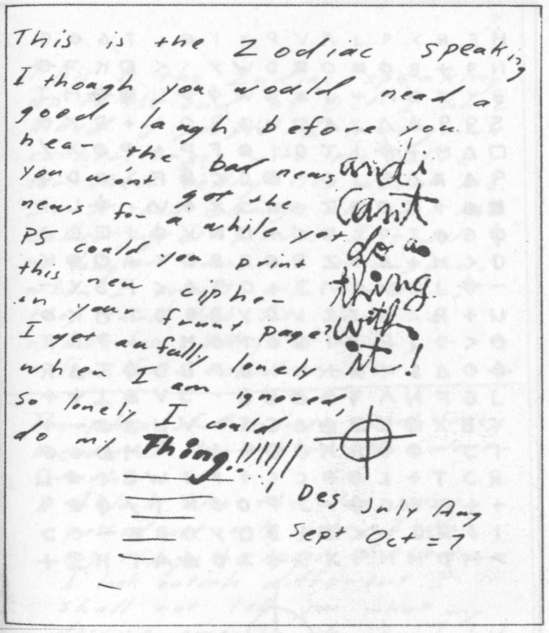 This is the Zodiac speaking
I though you would need a
good laugh before you
hear the bad news
you won't get the
news for a while yet
PS could you print
this new cipher
in your frunt page?
I get awfully lonely
when I am ignored,
so lonely I could
do my Thing!!!!!!
and i
can't
do a
thing
with
it!
Des July Aug
Sept Oct = 7